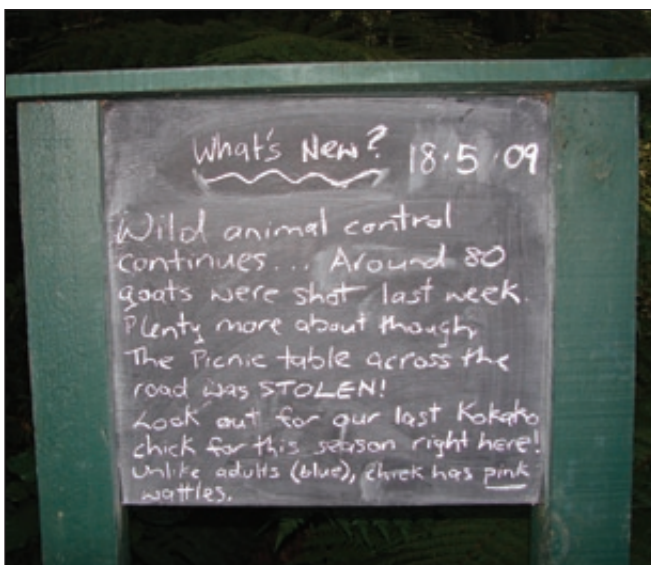 What's New? 18.5.09
Wild animal control
continues... Around 80
goats were shot last week.
Plenty more about though,
The Picnic table across the
road was STOLEN!
Look out for our last Kokako
chick for this season right here!
Unlike adults (blue), chick has pink
wattles.